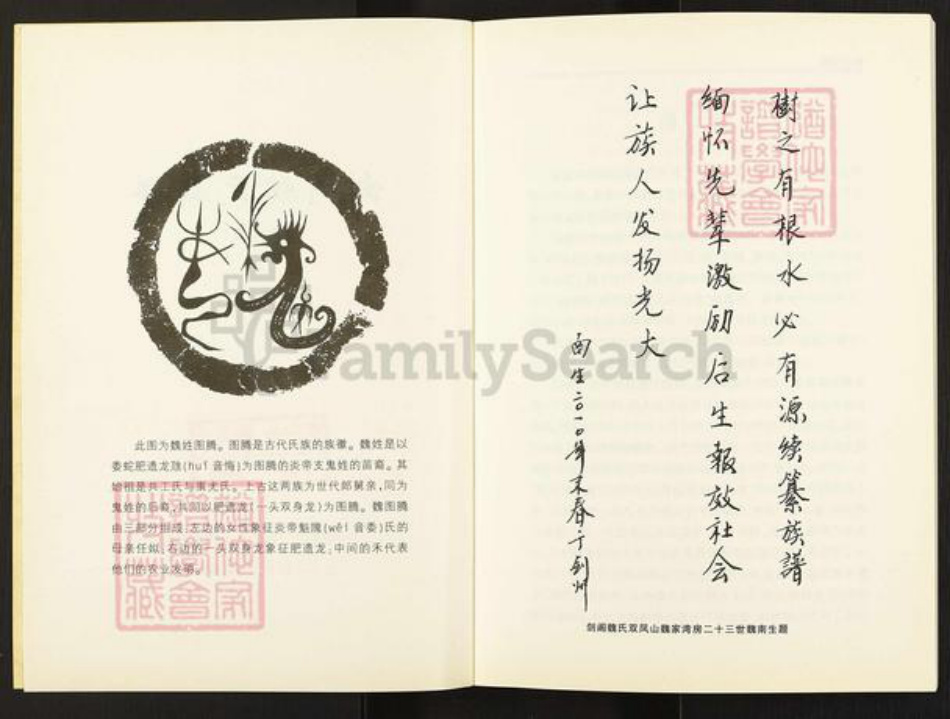 此图为魏姓图腾。图腾是古代氏族的族徽。魏姓是以
委蛇肥遗龙虺(huǐ 音悔)为图腾的炎帝支鬼姓的苗裔。其
始祖是共工氏与蚩尤氏。上古这两族为世代郎舅亲,同为
鬼姓的后裔,共同以肥遗龙(一头双身龙)为图腾。魏图腾
由三部分组成:左边的女性象征炎帝魁隗(wěi 音委)氏的
母亲任姒;右边的一头双身龙象征肥遗龙;中间的禾代表
他们的农业发明。
樹之有根水必有源续纂族譜
缅怀先辈激励后生報效社会
让族人发扬光大
南生二〇一〇年末春于剑州
剑阁魏氏双凤山魏家湾房二十三世魏南生题
FamilySearch